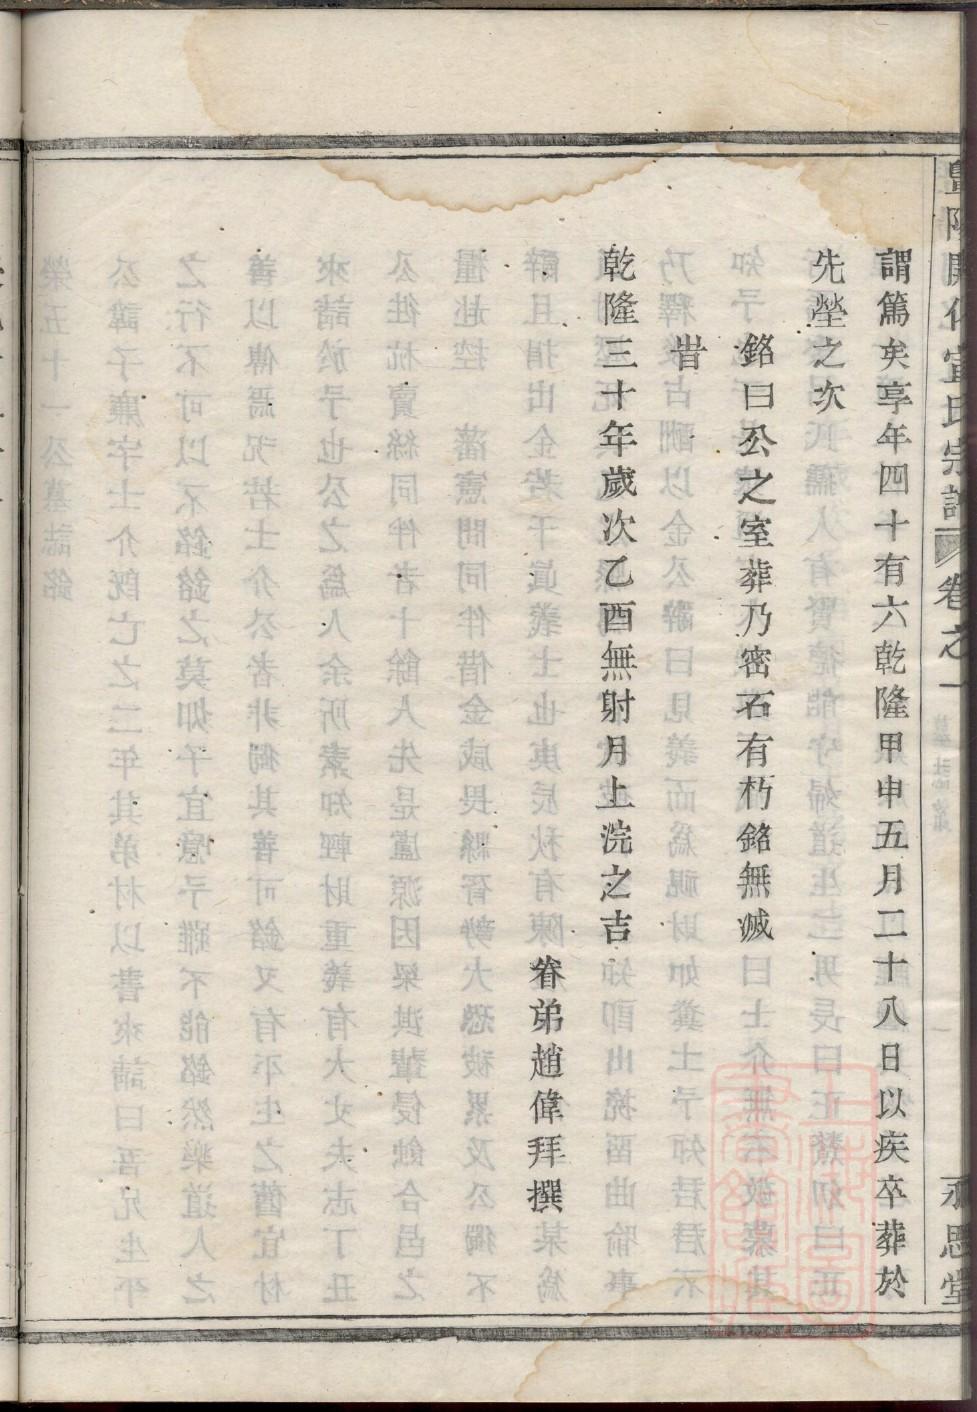 暨陽開化宣氏宗譜 卷之一 永思堂
謂篤矣享年四十有六乾隆甲申五月二十八日以疾卒葬於
先塋之次
銘曰公之室葬乃密石有朽銘無滅
旹
乾隆三十年歲次乙酉無射月上浣之吉
眷弟趙偉拜撰